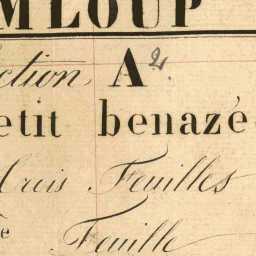 MLOUP
ction A 2.
etit benazé
trois Feuilles
e
Feuille